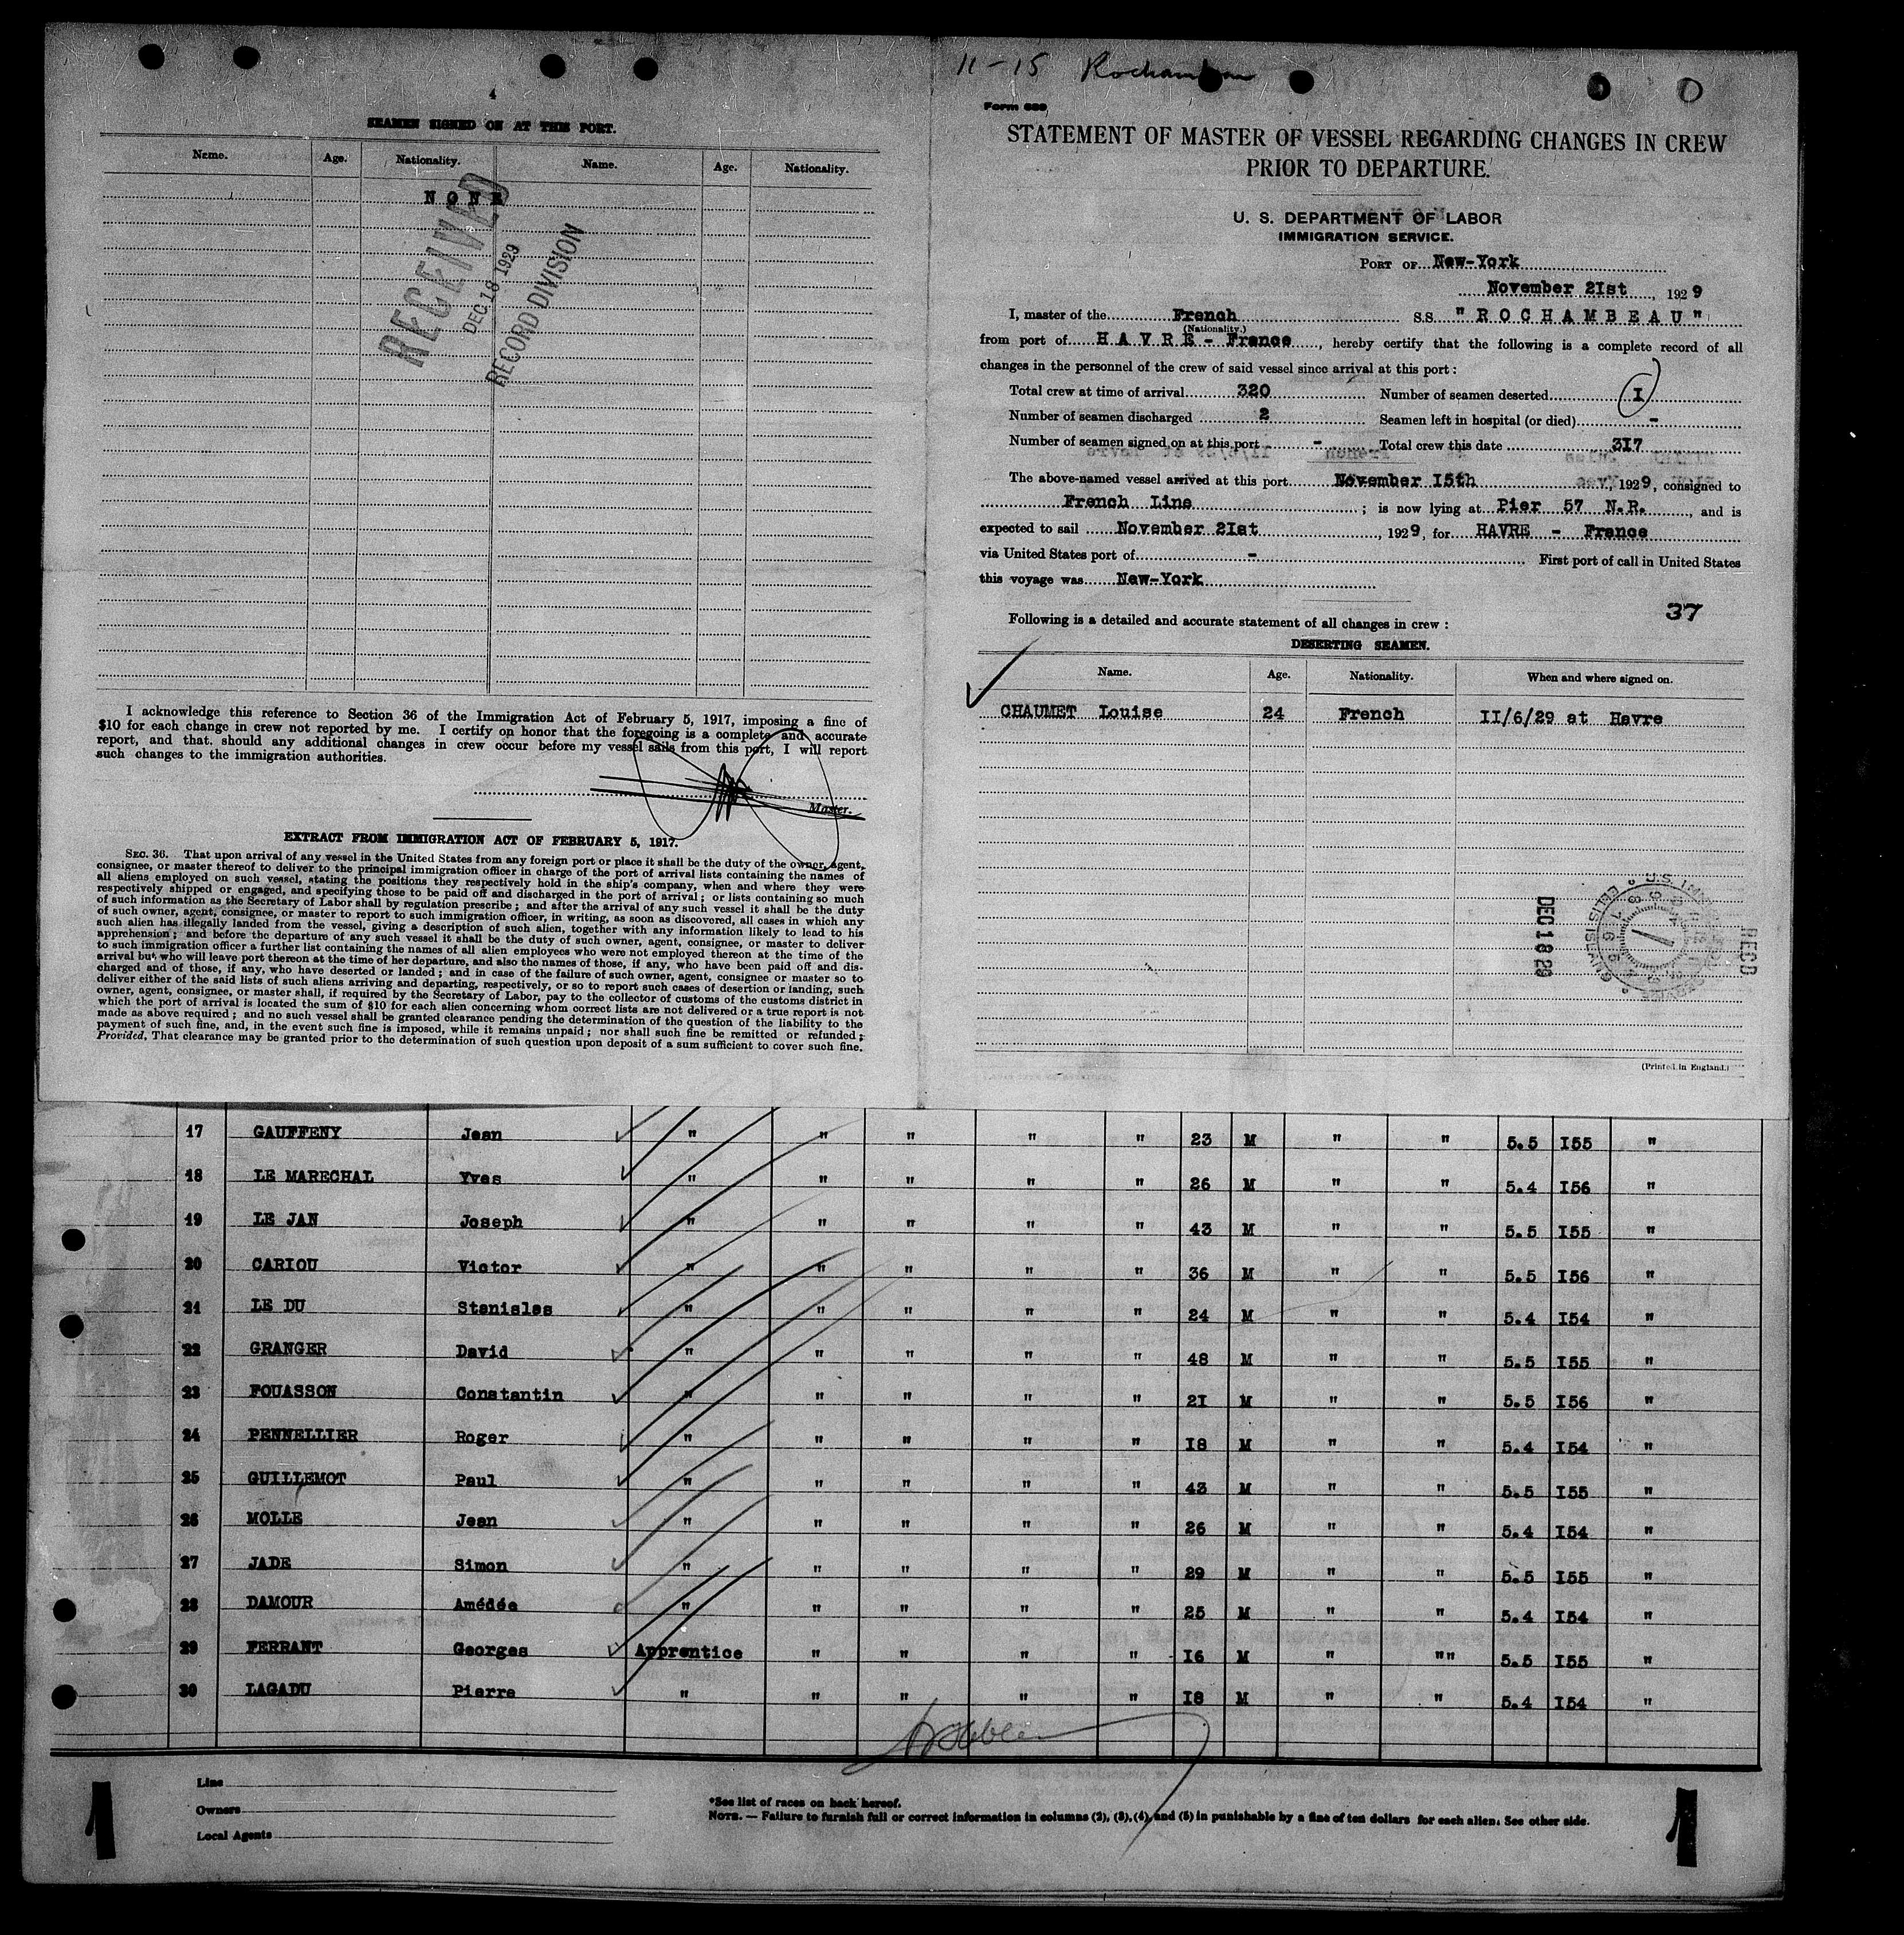 4
SEAMEN SIGNED ON AT THIS PORT.
Name. Age. Nationality. Name. Age. Nationality.
N O N E
RECEIVED
DEC 18 1929
RECORD DIVISION
I acknowledge this reference to Section 36 of the Immigration Act of February 5, 1917, imposing a fine of
$10 for each change in crew not reported by me. I certify on honor that the foregoing is a complete and accurate
report, and that should any additional changes in crew occur before my vessel sails from this port, I will report
such changes to the immigration authorities.
Master.
EXTRACT FROM IMMIGRATION ACT OF FEBRUARY 5, 1917.
SEC. 36. That upon arrival of any vessel in the United States from any foreign port or place it shall be the duty of the owner, agent,
consignee, or master thereof to deliver to the principal immigration officer in charge of the port of arrival lists containing the names of
all aliens employed on such vessel, stating the positions they respectively hold in the ship's company, when and where they were
respectively shipped or engaged, and specifying those to be paid off and discharged in the port of arrival; or lists containing so much
of such information as the Secretary of Labor shall by regulation prescribe; and after the arrival of any such vessel it shall be the duty
of such owner, agent, consignee, or master to report to such immigration officer, in writing, as soon as discovered, all cases in which any
such alien has illegally landed from the vessel, giving a description of such alien, together with any information likely to lead to his
apprehension; and before the departure of any such vessel it shall be the duty of such owner, agent, consignee, or master to deliver
to such immigration officer a further list containing the names of all alien employees who were not employed thereon at the time of the
arrival but who will leave port thereon at the time of her departure, and also the names of those, if any, who have been paid off and dis-
charged and of those, if any, who have deserted or landed; and in case of the failure of such owner, agent, consignee or master so to
deliver either of the said lists of such aliens arriving and departing, respectively, or so to report such cases of desertion or landing, such
owner, agent, consignee, or master shall, if required by the Secretary of Labor, pay to the collector of customs of the customs district in
which the port of arrival is located the sum of $10 for each alien concerning whom correct lists are not delivered or a true report is not
made as above required; and no such vessel shall be granted clearance pending the determination of the question of the liability to the
payment of such fine, and, in the event such fine is imposed, while it remains unpaid; nor shall such fine be remitted or refunded;
Provided, That clearance may be granted prior to the determination of such question upon deposit of a sum sufficient to cover such fine.
11-15 Rochambeau
Form 689
STATEMENT OF MASTER OF VESSEL REGARDING CHANGES IN CREW
PRIOR TO DEPARTURE.
U. S. DEPARTMENT OF LABOR
IMMIGRATION SERVICE.
PORT OF New-York
November 2Ist, 1929
I, master of the French S.S. "R O C H A M B E A U"
(Nationality.)
from port of H A V R E - France, hereby certify that the following is a complete record of all
changes in the personnel of the crew of said vessel since arrival at this port:
Total crew at time of arrival 320 Number of seamen deserted I
Number of seamen discharged 2 Seamen left in hospital (or died) -
Number of seamen signed on at this port - Total crew this date 3I7
The above-named vessel arrived at this port November I5th, 1929, consigned to
French Line; is now lying at Pier 57 N.R., and is
expected to sail November 2Ist, 1929, for HAVRE - France
via United States port of - First port of call in United States
this voyage was New-York
37
Following is a detailed and accurate statement of all changes in crew:
DESERTING SEAMEN.
Name. Age. Nationality. When and where signed on.
CHAUMET Louise 24 French II/6/29 at Havre
DEC 18 29
REC'D
(Printed in England.)
17 GAUFFENY Jean " " " " " 23 M " " 5.5 I55 "
18 LE MARECHAL Yves " " " " " 26 M " " 5.4 I56 "
19 LE JAN Joseph " " " " " 43 M " " 5.5 I55 "
20 CARIOU Victor " " " " " 36 M " " 5.5 I56 "
21 LE DU Stanislas " " " " " 24 M " " 5.4 I54 "
22 GRANGER David " " " " " 48 M " " 5.5 I55 "
23 FOUASSON Constantin " " " " " 2I M " " 5.5 I56 "
24 PENNELLIER Roger " " " " " I8 M " " 5.4 I54 "
25 GUILLEMOT Paul " " " " " 43 M " " 5.5 I55 "
26 MOLLE Jean " " " " " 26 M " " 5.4 I54 "
27 JADE Simon " " " " " 29 M " " 5.5 I55 "
28 DAMOUR Amédée " " " " " 25 M " " 5.4 I54 "
29 FERRANT Georges Apprentice " " " " I6 M " "" 5.5 I55 "
30 LAGADU Pierre " " " " " I8 M " " 5.4 I54 "
Line
Owners
Local Agents
*See list of races on back hereof.
NOTE. — Failure to furnish full or correct information in columns (2), (3), (4) and (5) in punishable by a fine of ten dollars for each alien. See other side.
1 1